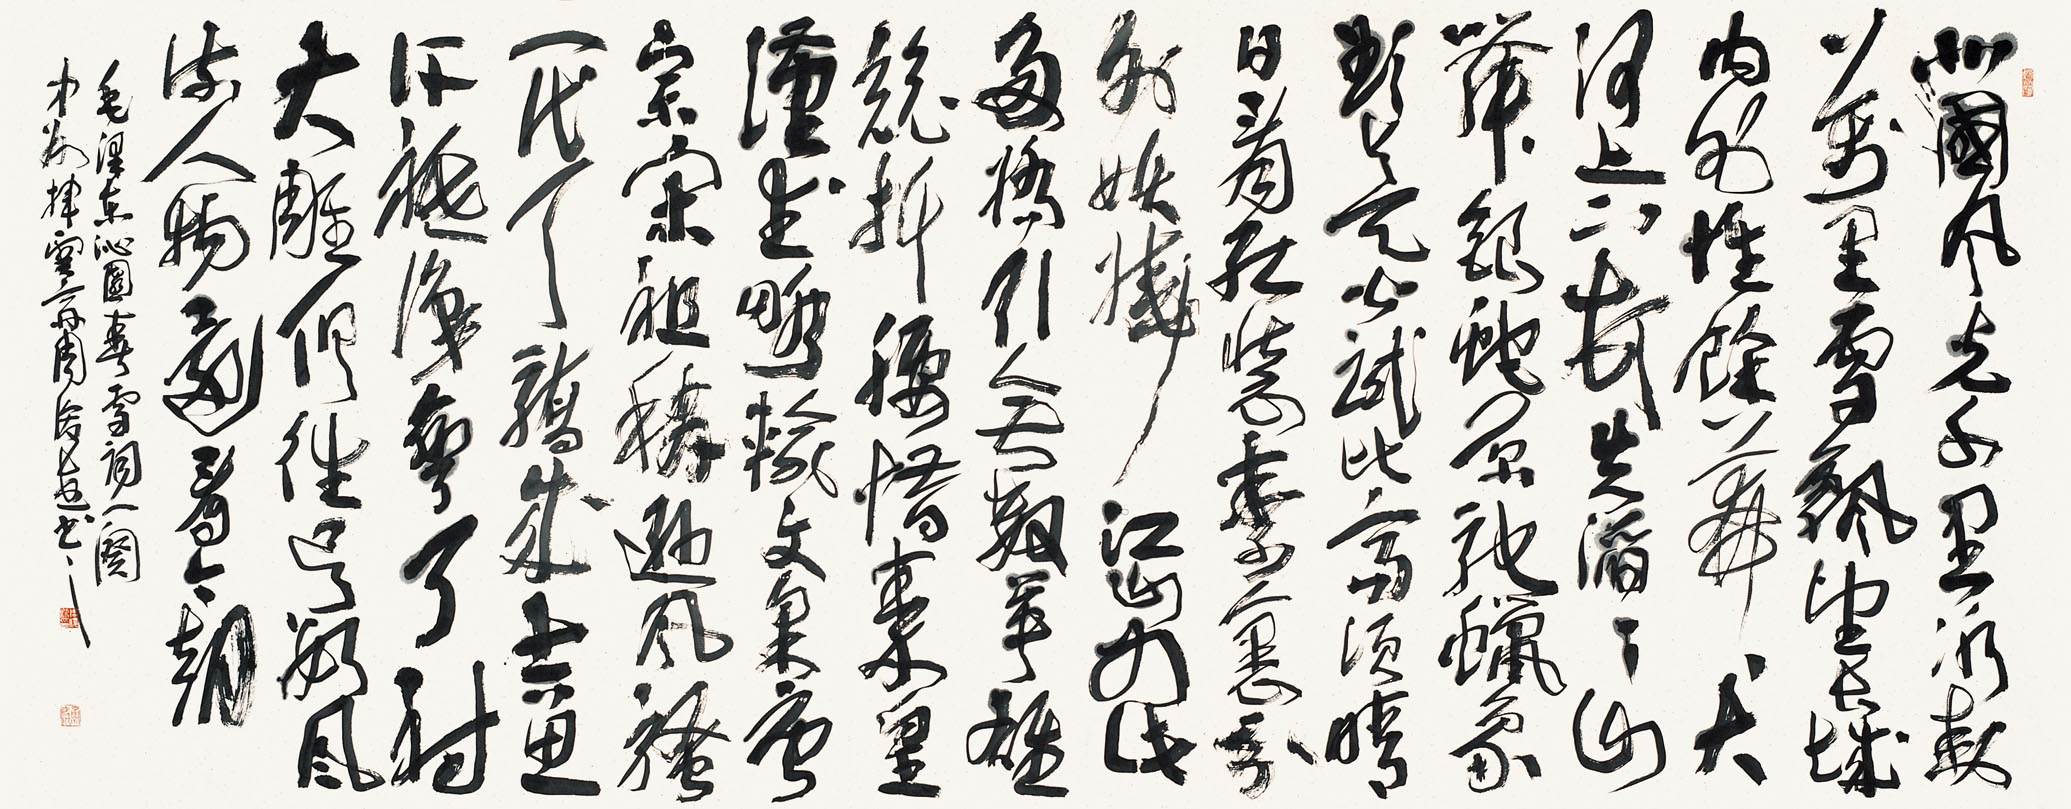 北國风光千里冰封
萬里雪飄望长城
内外惟餘莽莽大
河上下頓失滔滔山
舞銀蛇原馳蠟象
欲与天公試比高須晴
日看紅裝素裹分
外妖嬈江山如此
多嬌引无數英雄
競折腰惜秦皇
漢武略輸文采唐
宗宋祖稍遜风騷
一代天驕成吉思
汗祇識彎弓射
大雕俱往矣數风
流人物還看今朝
毛澤东沁園春雪詞一闋
中州揮雲斋周俊杰书